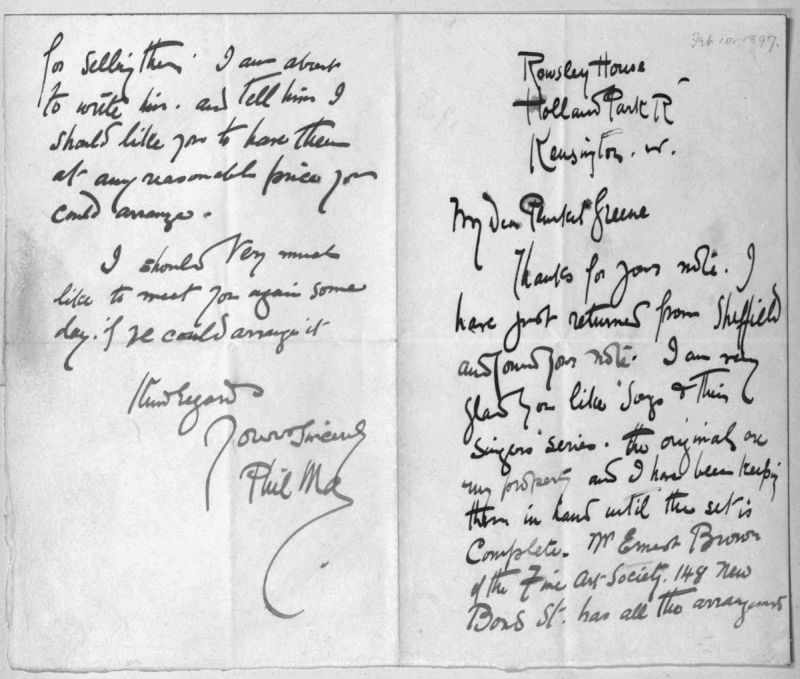 Feb 10. 1897.
Rowsley House
Holland Park Rd
Kensington. W.
My Dear Plunket Greene
Thanks for your note. I
have just returned from Sheffield
and found your note. I am very
glad you like "Songs & their
Singers" series. The originals are
my property and I have been keeping
them in hand until the set is
Complete. Mr Ernest Brown
of the Fine Art Society. 148 New
Bond St. has all the arrangements
for selling them. I am about
to write him. and tell him I
should like you to have them
at any reasonable price you
could arrange.
I should very much
like to meet you again some
day. if we could arrange it
Kind regards
Yours Sincerely
Phil May